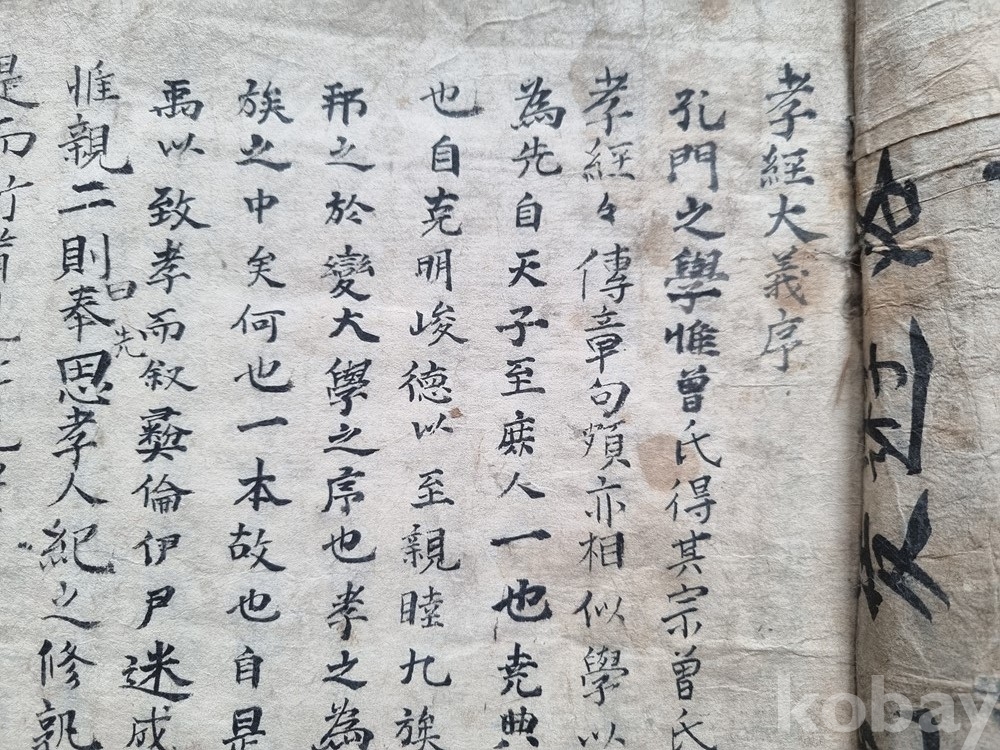 孝經大義序
孔門之學惟曾氏得其宗曾氏
孝經々傳章句頗亦相似學以
為先自天子至庶人一也堯典
也自克明峻德以至親睦九族
邦之於變大學之序也孝之為
族之中矣何也一本故也自是
禹以致孝而叙彛倫伊尹述成
惟親二則奉先思孝人紀之修孰
是而
kobay